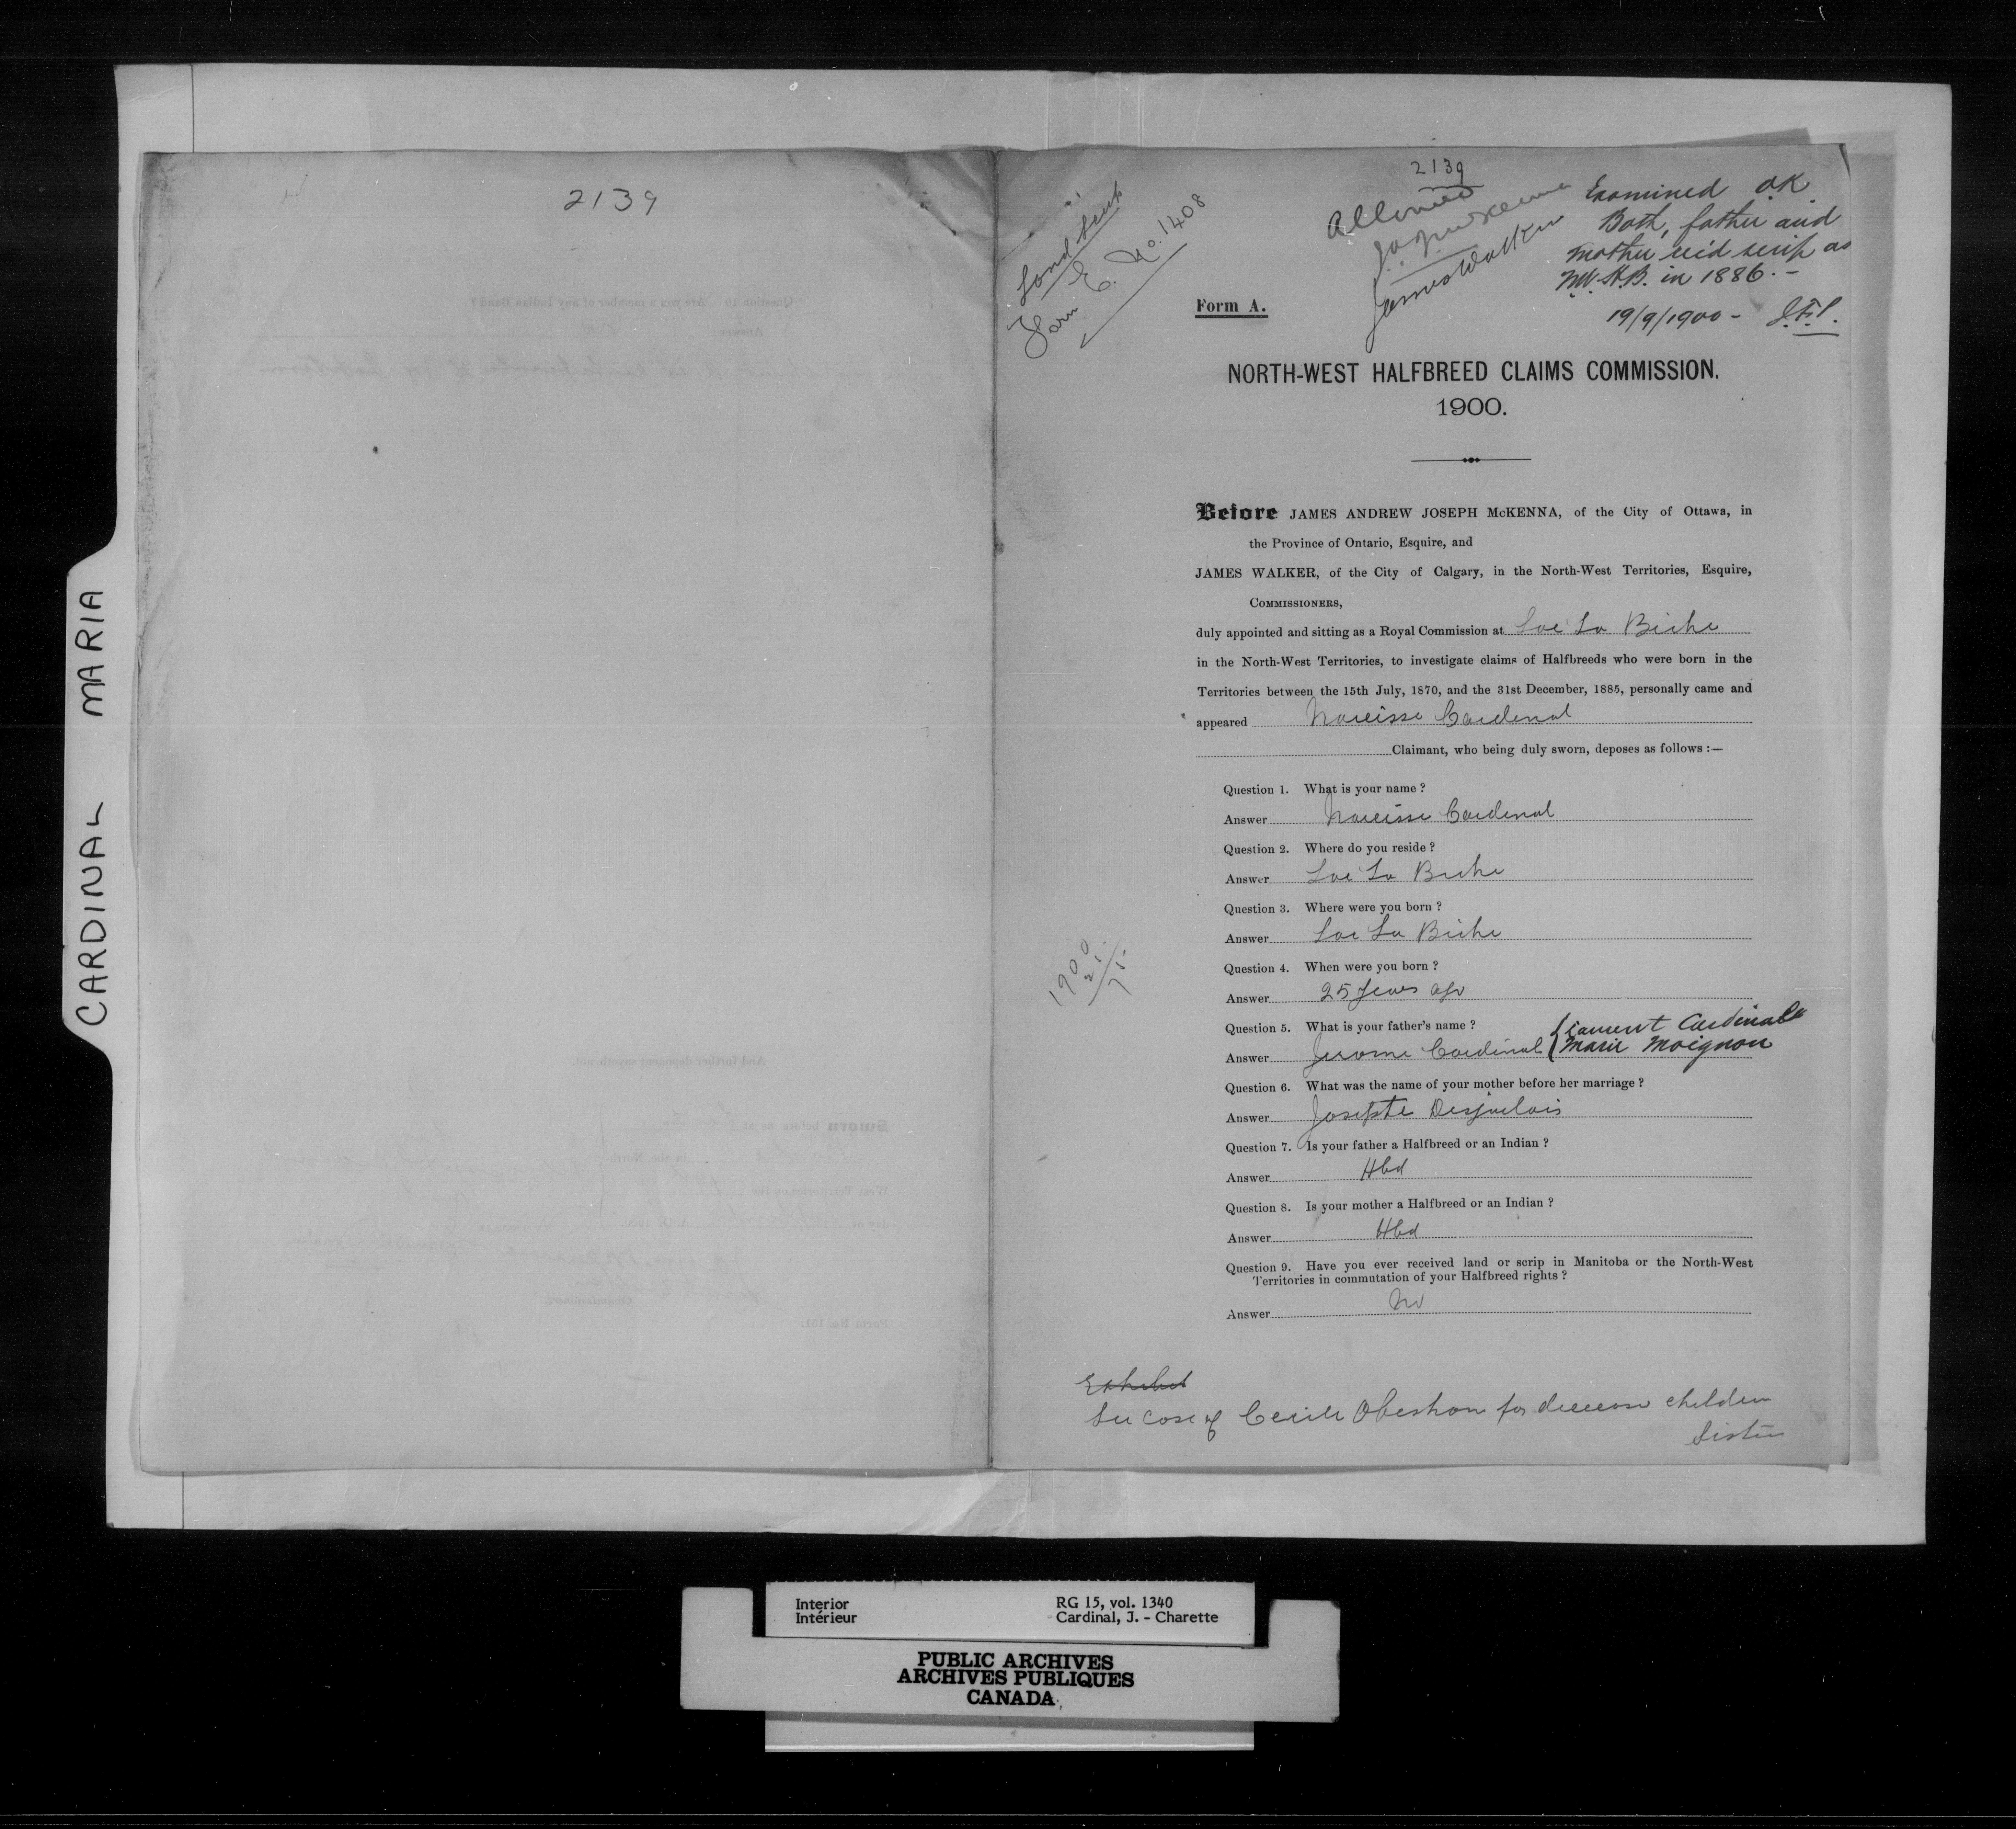 CARDINAL MARIA
2139
2139
Land Scrip
Form E. No. 1408
Allowed
J.A.J. McKenna
James Walker
Examined OK
Both, father and
mother rec'd scrip as
N.W.H.B. in 1886. -
19/9/1900 -
Form A.
NORTH-WEST HALFBREED CLAIMS COMMISSION.
1900.
Before JAMES ANDREW JOSEPH McKENNA, of the City of Ottawa, in
the Province of Ontario, Esquire, and
JAMES WALKER, of the City of Calgary, in the North-West Territories, Esquire,
COMMISSIONERS,
duly appointed and sitting as a Royal Commission at Lac La Biche
in the North-West Territories, to investigate claims of Halfbreeds who were born in the
Territories between the 15th July, 1870, and the 31st December, 1885, personally came and
appeared Narcisse Cardinal
Claimant, who being duly sworn, deposes as follows :—
Question 1. What is your name ?
Answer Narcisse Cardinal
Question 2. Where do you reside ?
Answer Lac La Biche
Question 3. Where were you born ?
Answer Lac La Biche
Question 4. When were you born ?
Answer 25 years ago
1900
75
Question 5. What is your father's name ?
Laurent Cardinal
Answer Jerome Cardinal { Marie Moignon
Question 6. What was the name of your mother before her marriage ?
Answer Josephte Desjarlais
Question 7. Is your father a Halfbreed or an Indian ?
Answer Hbd
Question 8. Is your mother a Halfbreed or an Indian ?
Answer Hbd
Question 9. Have you ever received land or scrip in Manitoba or the North-West
Territories in commutation of your Halfbreed rights ?
Answer No
Exhibit
See case of Cecile for decease children
Sister
Interior RG 15, vol. 1340
Intérieur Cardinal, J. - Charette
PUBLIC ARCHIVES
ARCHIVES PUBLIQUES
CANADA